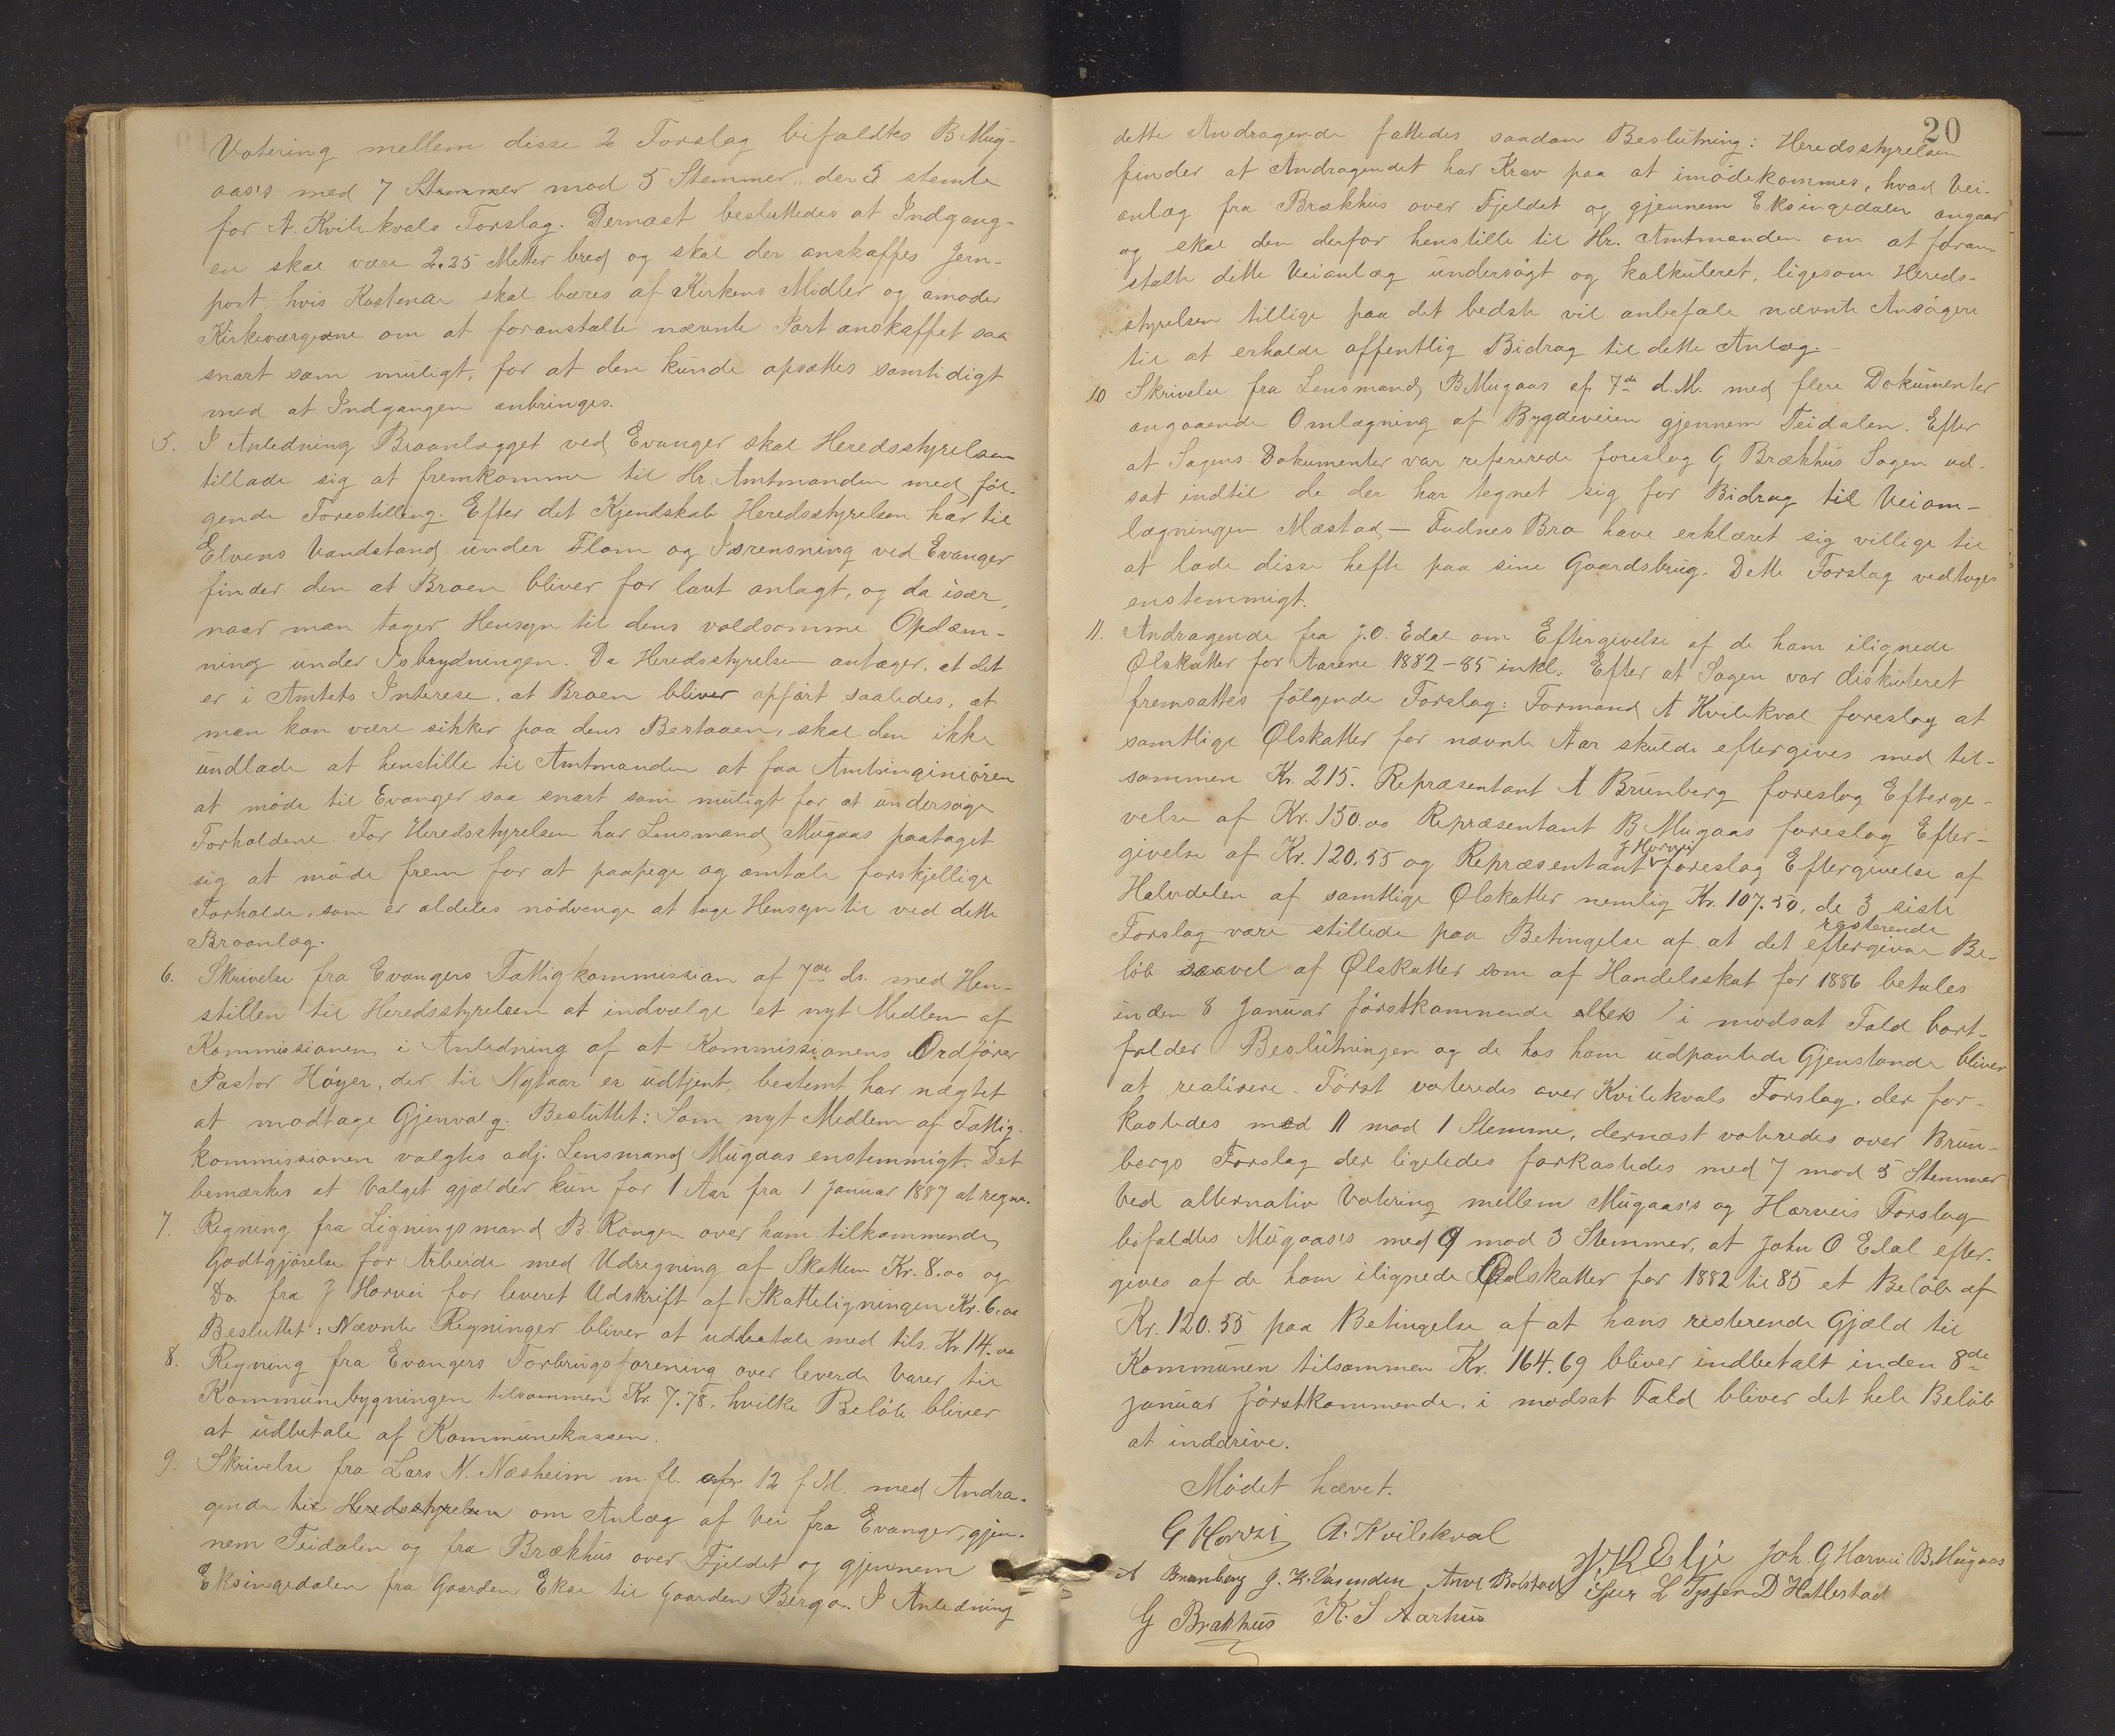 Votering mellem disse 2 Forslag bifaldtes B Mug-
aas's med 7 Stemmer mod 5 Stemmer, der 5 stemte
for A. Kvilekvals Forslag. Dernæst besluttedes at Indgang-
en skal være 2.25 Metter bred og skal der anskaffes Jern-
port, hvis Kostende skal bæres af Kirkens Midler og anmoder
Kirkeværgerne om at foranstalte nævnte Port anskaffet saa
snart som muligt, for at den kunde opsættes samtidigt
med at Indgangen anbringes.
5. I Anledning Broanlægget ved Evanger skal Heredsstyrelsen
tillade sig at fremkomme til Hr. Amtmanden med føl-
gende Forestilling. Efter det Kjendskab Heredsstyrelsen har til
Elvens Vandstand under Flom og Isrensning ved Evanger
finder den at Broen bliver for lavt anlagt, og da især,
naar man tager Hensyn til dens voldsomme Opdæm-
ning under Isbrydningen. Da Heredsstyrelsen antager, at det
er i Amtets Interese, at Broen bliver opført saaledes, at
man kan være sikker paa dens Bestaaen, skal den ikke
undlade at henstille til Amtmanden at faa Amtsinginiøren
at møde til Evanger saa snart som muligt for at undersøge
Forholdene. For Heredsstyrelsen har Lensmand Mugaas paataget
sig at møde frem for at paapege og omtale forskjellige
Forholde, som er aldeles nødvenge at tage Hensyn til ved dette
Broanlæg.
6. Skrivelse fra Evangers Fattigkommission af 7de ds. med Hen-
stillen til Heredsstyrelsen at indvælge et nyt Medlem af
Kommissionen i Anledning af at Kommissionens Ordfører
Pastor Høyer, der til Nytaar er udtjent, bestemt har nægtet
at modtage Gjenvalg. Besluttet: Som nyt Medlem af Fattig-
kommissionen valgtes adj. Lensmand Mugaas enstemmigt. Det
bemærkes at Valget gjælder kun for 1 Aar fra 1 Januar 1887 at regne.
7. Regning fra Ligningsmand B. Ringen over ham tilkommende
Godtgjørelse for Arbeide med Udregning af Skatten Kr. 8.00 og
Do. fra J Horvei for leveret Udskrift af Skatteligningen Kr. 6.00
Besluttet: Nævnte Regninger bliver at udbetale med tils. Kr. 14.00
8. Regning fra Evangers Forbrugsforening over leverde Varer til
Kommunebygningen tilsammen Kr. 7.78, hvilke Beløb bliver
at udbetale af Kommunekassen.
9. Skrivelse fra Lars N. Næsheim m. fl. af 12 f M. med Andra-
gende til Heredsstyrelsen om Anlæg af Vei fra Evanger, gjen-
nem Teidalen og fra Brækhus over Fjeldet og gjennem
Eksingedalen fra Gaarden Ekse til Gaarden Bergo. I Anledning
20
dette Andragende fattedes saadan Beslutning: Heredsstyrelsen
finder at Andragendet har Krav paa at imødekommes, hvad Vei-
anlæg fra Brækhus over Fjeldet og gjennem Eksingedalen angaar
og skal den derfor henstille til Hr. Amtmanden om at foran-
stalte dette Veianlæg undersøgt og kalkuleret, ligesom Hereds-
styrelsen tillige paa det bedste vil anbefale nævnte Ansøgere
til at erholde offentlig Bidrag til dette Anlæg.-
10 Skrivelse fra Lensmand B. Mugaas af 7de d.M. med flere Dokumenter
angaaende Omlægning af Bygdeveien gjennem Teidalen. Efter
at Sagens Dokumenter var refererede foreslog G Brækhus Sagen ud-
sat indtil de der har tegnet sig for Bidrag til Veiom-
lægningen Mæstad - Fadnes Bro have erklæret sig villige til
at lade disse hefte paa sine Gaardsbrug. Dette Forslag vedtoges
enstemmigt.
11. Andragende fra J.O. Edal om Eftergivelse af de ham ilignede
Ølskatter for Aarene 1882-85 inkl. Efter at Sagen var diskuteret
fremsattes følgende Forslag: Formand A Kvilekval foreslog at
samtlige Ølskatter for nævnte Aar skulde eftergives med til-
sammen Kr. 215. Repræsentant A Brunberg foreslog Efterge-
velse af Kr. 150.00 Repræsentant B Mugaas foreslog Efter-
givelse af Kr. 120.55 og Repræsentant J Horvei foreslog Eftergivelse af
Halvdelen af samtlige Ølskatter nemlig Kr. 107.50, de 3 siste
Forslag vare stillede paa Betingelse af at det resterende eftergivne Be-
løb saavel af Ølskatter som af Handelsskat for 1886 betales
inden 8 Januar førstkommende ellers / i modsat Fald bort-
falder Beslutningen og de hos ham udpantede Gjenstande bliver
at realisere. Først voteredes over Kvilekvals Forslag, der for-
kastedes med 11 mod 1 Stemme, dernæst voteredes over Brun-
bergs Forslag der ligeledes forkastedes med 7 mod 5 Stemmer
Ved alternativ Votering mellem Mugaas's og Horveis Forslag
bifaldtes Mugaas's med 9 mod 3 Stemmer, at John O Edal efter-
gives af de ham ilignede Ølskatter for 1882 til 85 et Beløb af
Kr. 120.55 paa Betingelse af at hans resterende Gjæld til
Kommunen tilsammen Kr. 164.69 bliver indbetalt inden 8de
Januar førstkommende, i modsat Fald bliver det hele Beløb
at inddrive.
Mødet hævet.
G Horvei A. Kvilekval
A Brunberg J. K. Vasenden Anve Bolstad J K Elje Joh. G Horvei B. Mugaas
G Brækhus K. S Aarhus Sjur L D Hatlestad